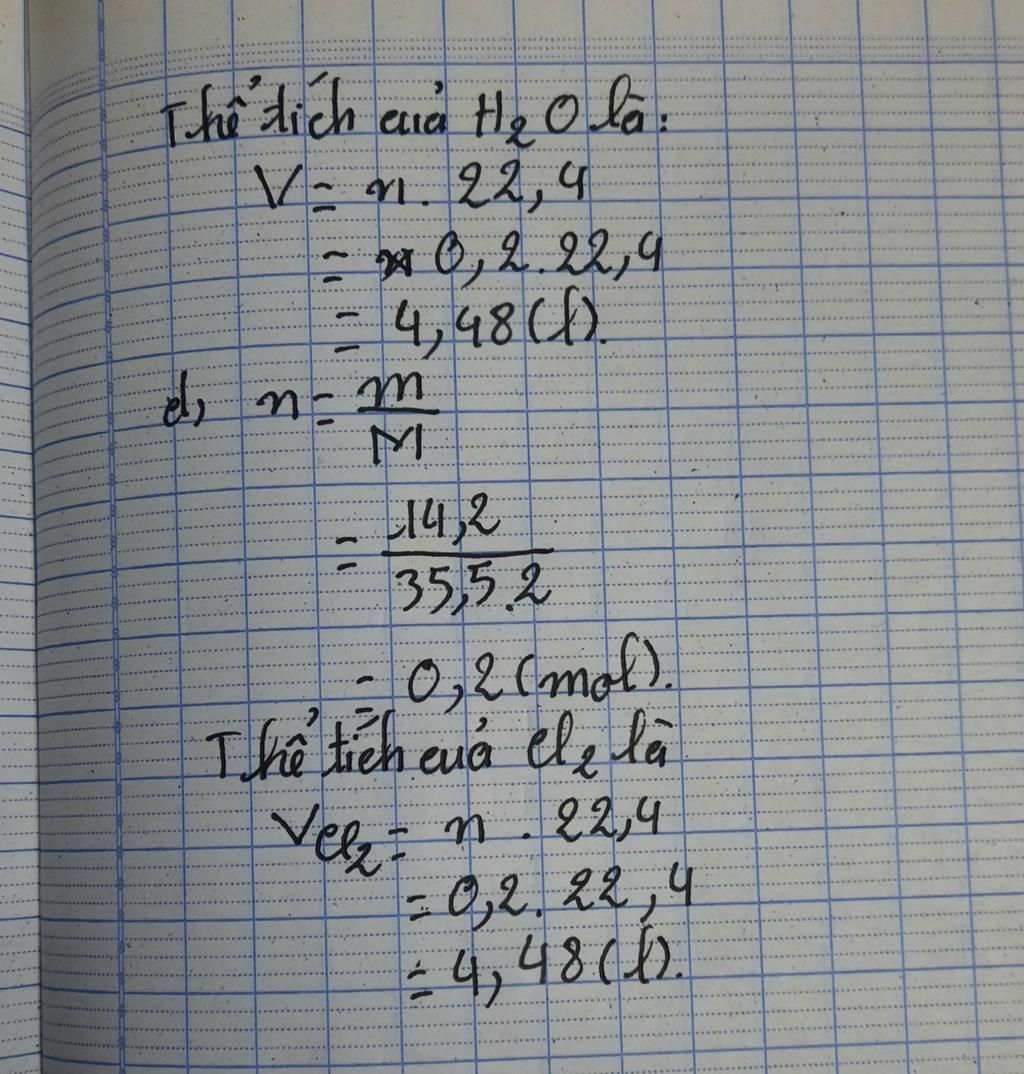 Thể tích của H₂O là:
V = n . 22,4
= 0,2 . 22,4
= 4,48 (l).
d, n = m/M
= 14,2/35,5.2
= 0,2 (mol).
Thể tích của Cl₂ là
V Cl₂ = n . 22,4
= 0,2 . 22,4
= 4,48 (l).